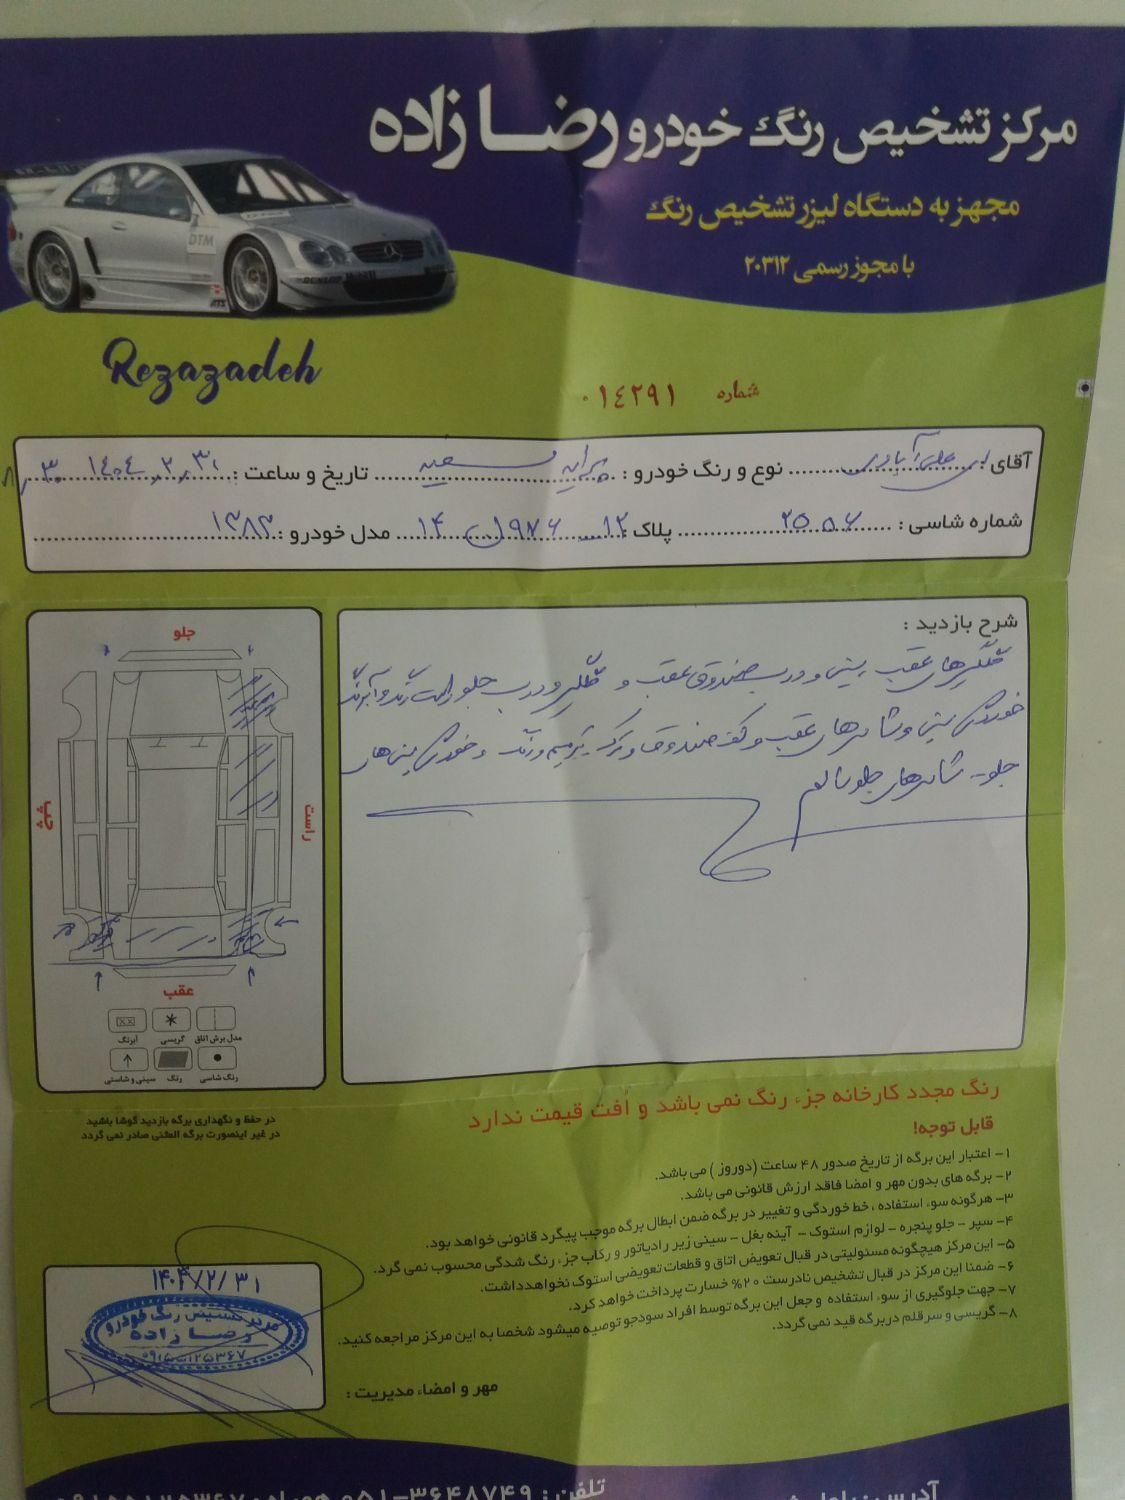 مرکز تشخیص رنگ خودرو رضا زاده
مجهز به دستگاه لیزر تشخیص رنگ
با مجوز رسمی ۲۰۳۱۲
DTM
Rezazadeh
شماره ۰۱۴۲۹۱
آقای : علی آبادی نوع و رنگ خودرو : پراید سفید تاریخ و ساعت : ۱۴۰۴/۲/۳۱
شماره شاسی : پلاک : ۱۲ ۹۷۶ ۱۴ مدل خودرو : ۱۳۸۳
شرح بازدید :
گلگیرهای عقب سینی و درب صندوق عقب و گلگیر و درب جلو راست رنگ و آبرنگ
خوردگی سینی و شاسی های عقب و کف صندوق و ترک ترمیم و رنگ و خوردگی سینی های
جلو - شاسی های جلو سالم
جلو
راست
چپ
عقب
مدل برش اتاق
گریسی
آبرنگ
رنگ شاسی
رنگ
سینی و شاسی
در حفظ و نگهداری برگه بازدید کوشا باشید
در غیر اینصورت برگه المثنی صادر نمی گردد
رنگ مجدد کارخانه جزء رنگ نمی باشد و اُفت قیمت ندارد
قابل توجه!
۱- اعتبار این برگه از تاریخ صدور ۴۸ ساعت (دوروز) می باشد.
۲- برگه های بدون مهر و امضا فاقد ارزش قانونی می باشد.
۳- هرگونه سوء استفاده ، خط خوردگی و تغییر در برگه ضمن ابطال برگه موجب پیگرد قانونی خواهد بود.
۴- سپر - جلو پنجره - لوازم استوک - آینه بغل - سینی زیر رادیاتور و رکاب جزء رنگ شدگی محسوب نمی گرد.
۵- این مرکز هیچگونه مسئولیتی در قبال تعویض اتاق و قطعات تعویضی استوک نخواهدداشت.
۶- ضمنا این مرکز در قبال تشخیص نادرست ۲۰% خسارت پرداخت خواهد کرد.
۷- جهت جلوگیری از سوء استفاده و جعل این برگه توسط افراد سودجو توصیه میشود شخصا به این مرکز مراجعه کنید.
۸- گریسی و سرقلم دربرگه قید نمی گردد.
۱۴۰۴/۲/۳۱
مرکز تشخیص رنگ خودرو
رضا زاده
۰۹۱۵۵۱۲۵۳۶۷
مهر و امضاء مدیریت :
تلفن : ۰۵۱-۳۶۴۸۷۴۹